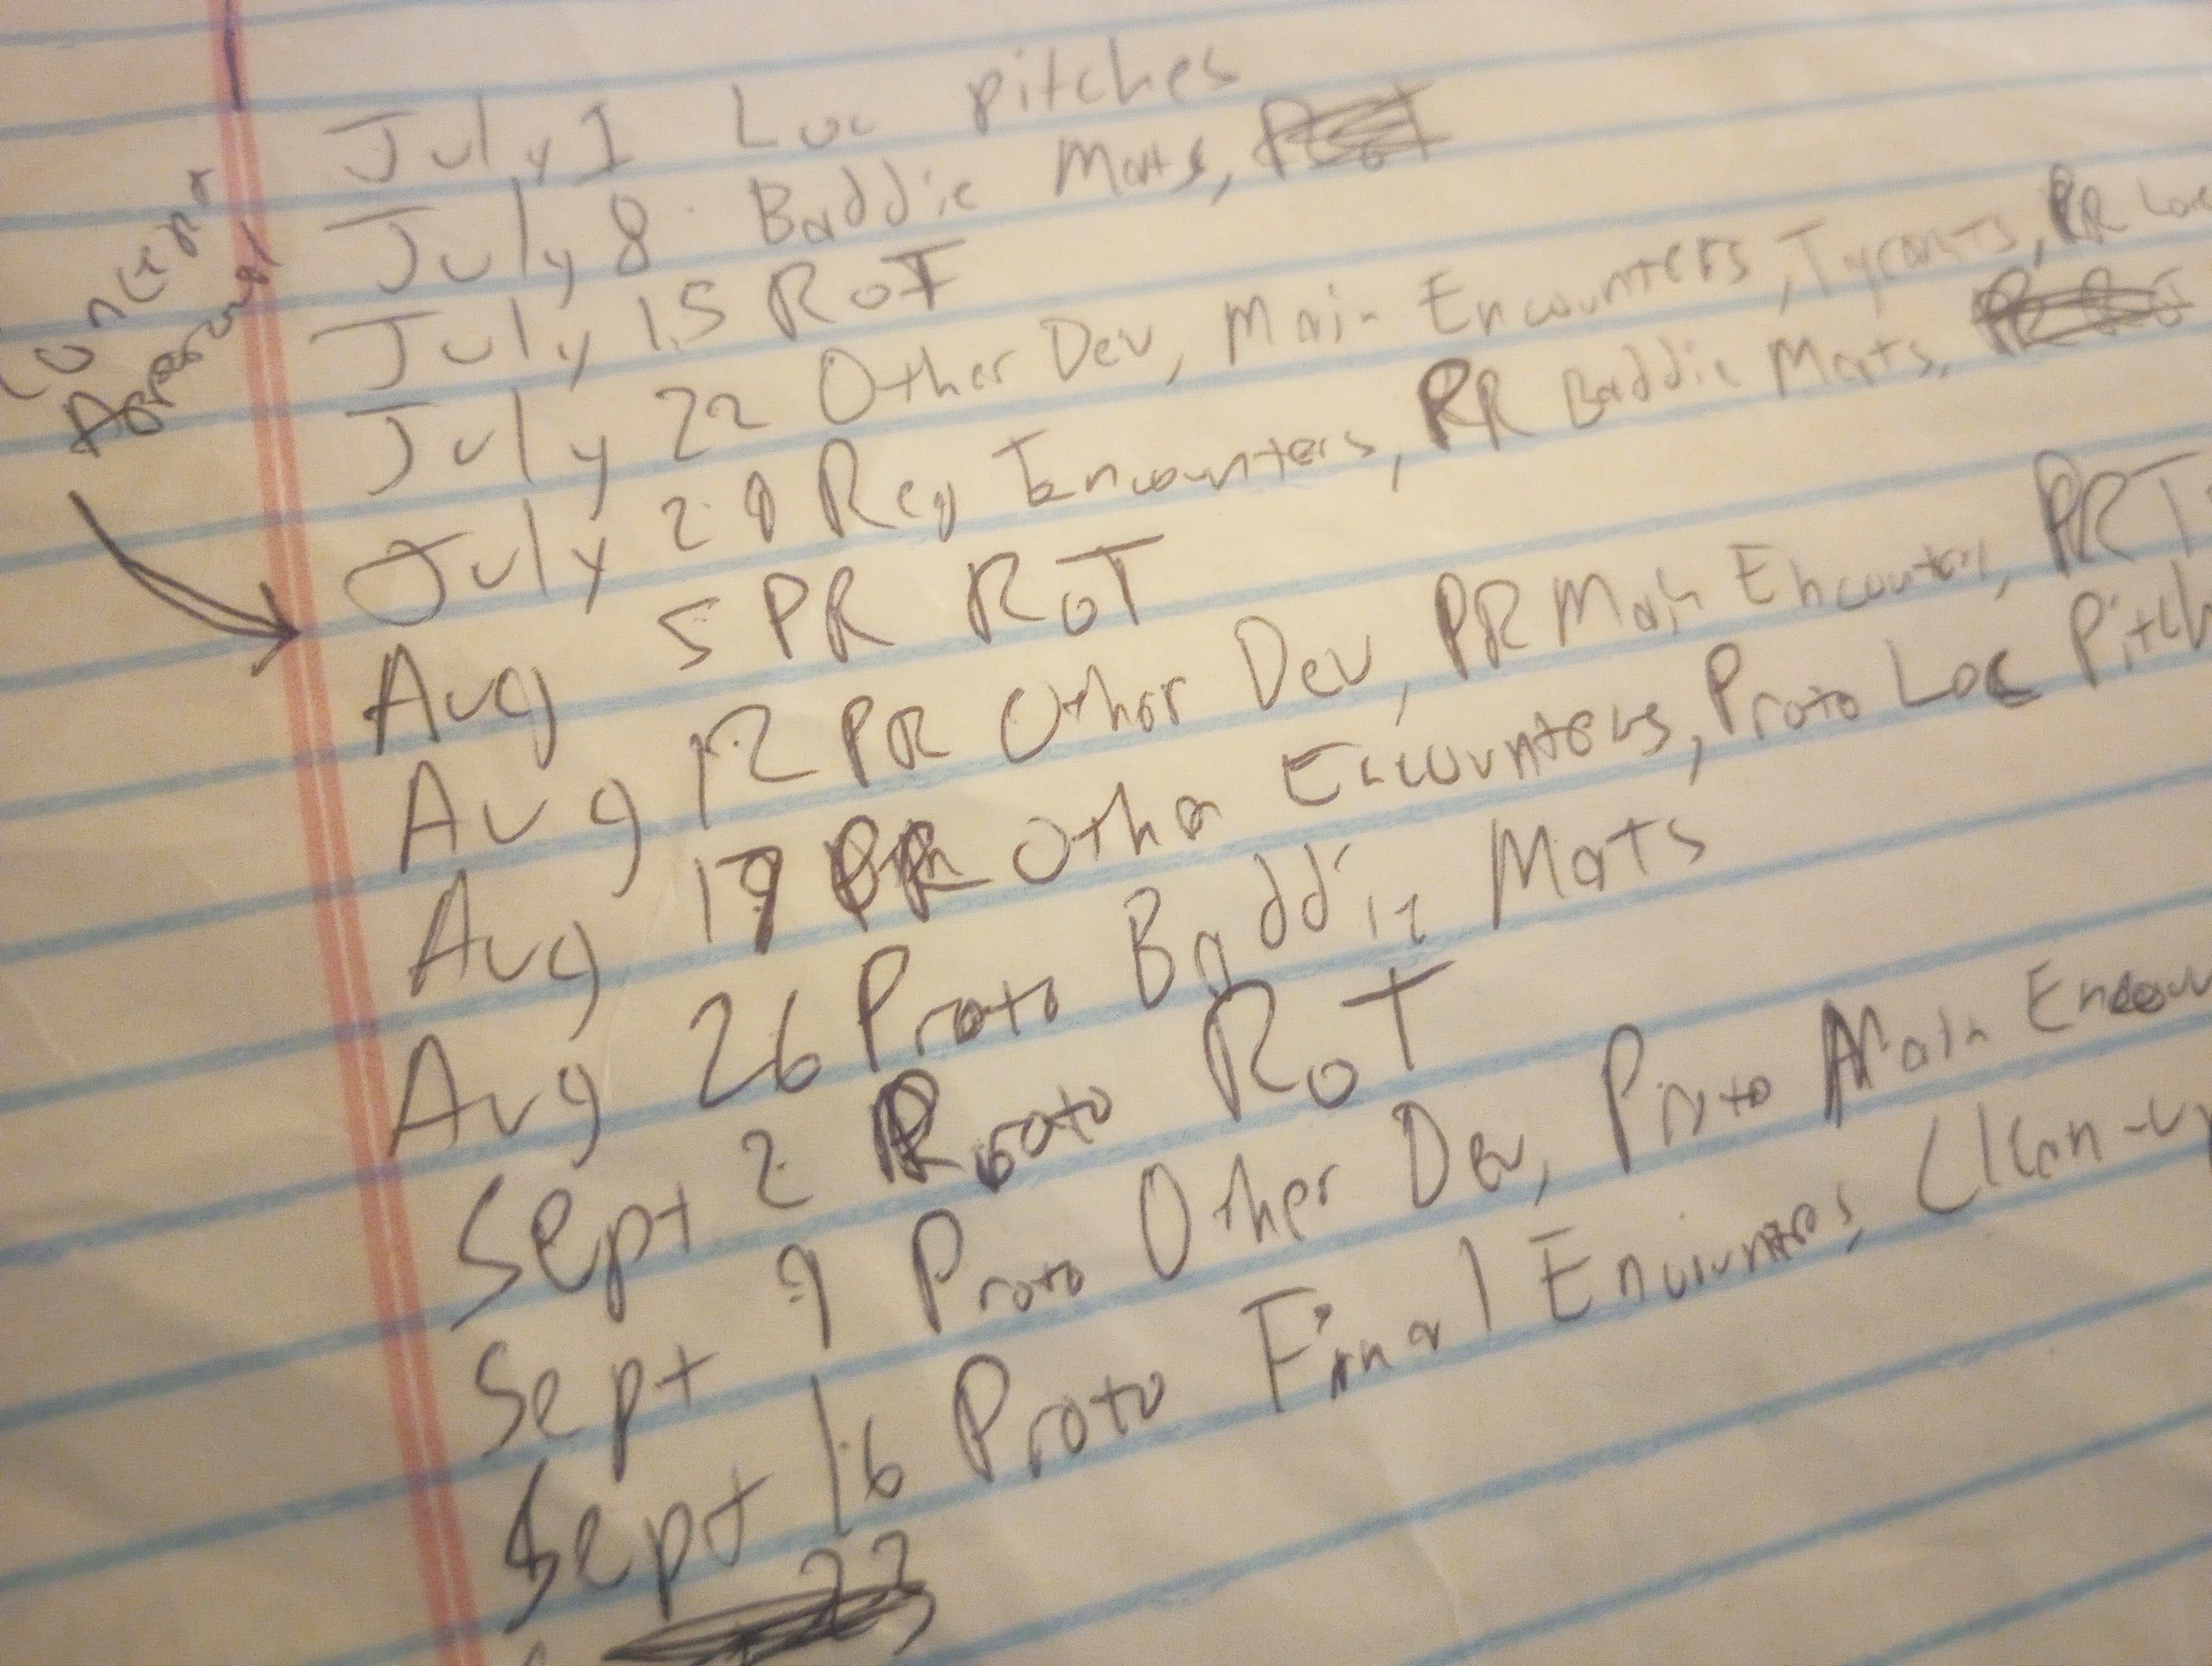 Concept
Approval
July 1 Loc pitches
July 8 Baddie Mats,
July 15 RoT
July 22 Other Dev, Main Encounters, Tyrants, PR Loc
July 29 Reg Encounters, PR Baddie Mats,
Aug 5 PR RoT
Aug 12 PR Other Dev, PR Main Encounters, PR T
Aug 19 PR Other Encounters, Proto Loc Pitch
Aug 26 Proto Baddie Mats
Sept 2 Proto RoT
Sept 9 Proto Other Dev, Proto Main Encoun
Sept 16 Proto Final Encounters, Clean-up